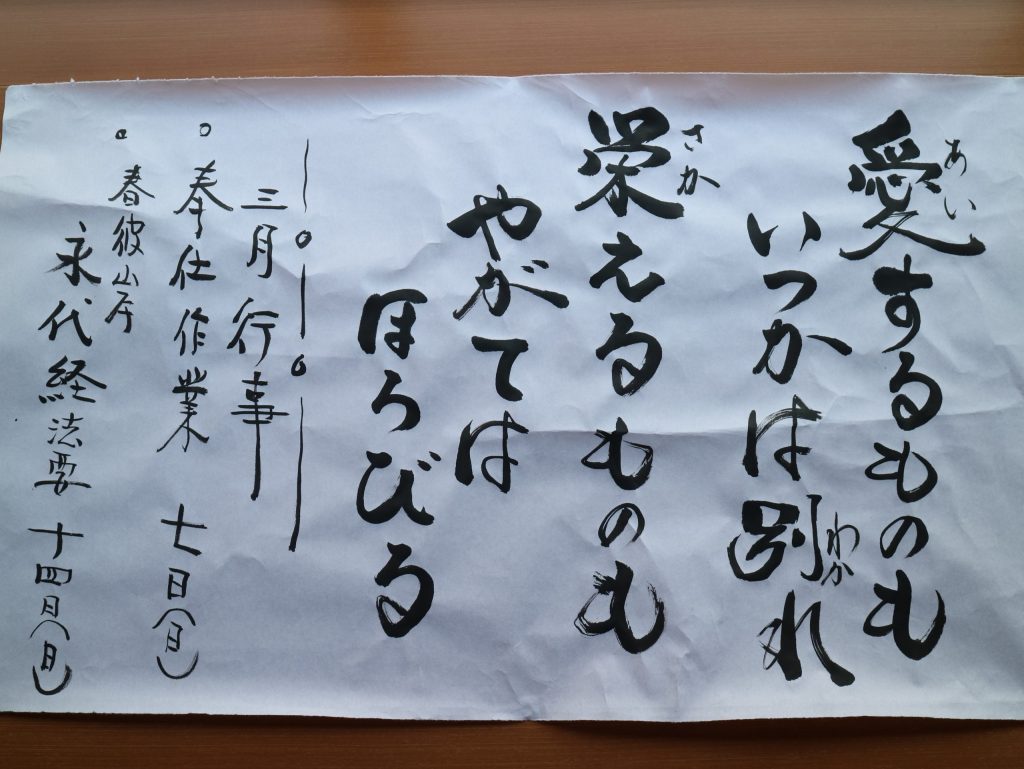 愛するものも
あい
いつかは別れ
わか
栄えるものも
さか
やがては
ほろびる
三月行事
○奉仕作業 七日(日)
○春彼岸
永代経法要 十四日(日)